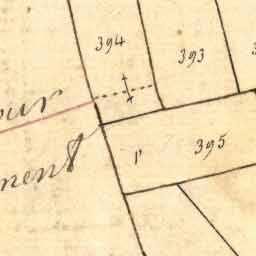 394
393
our
ment
P 395